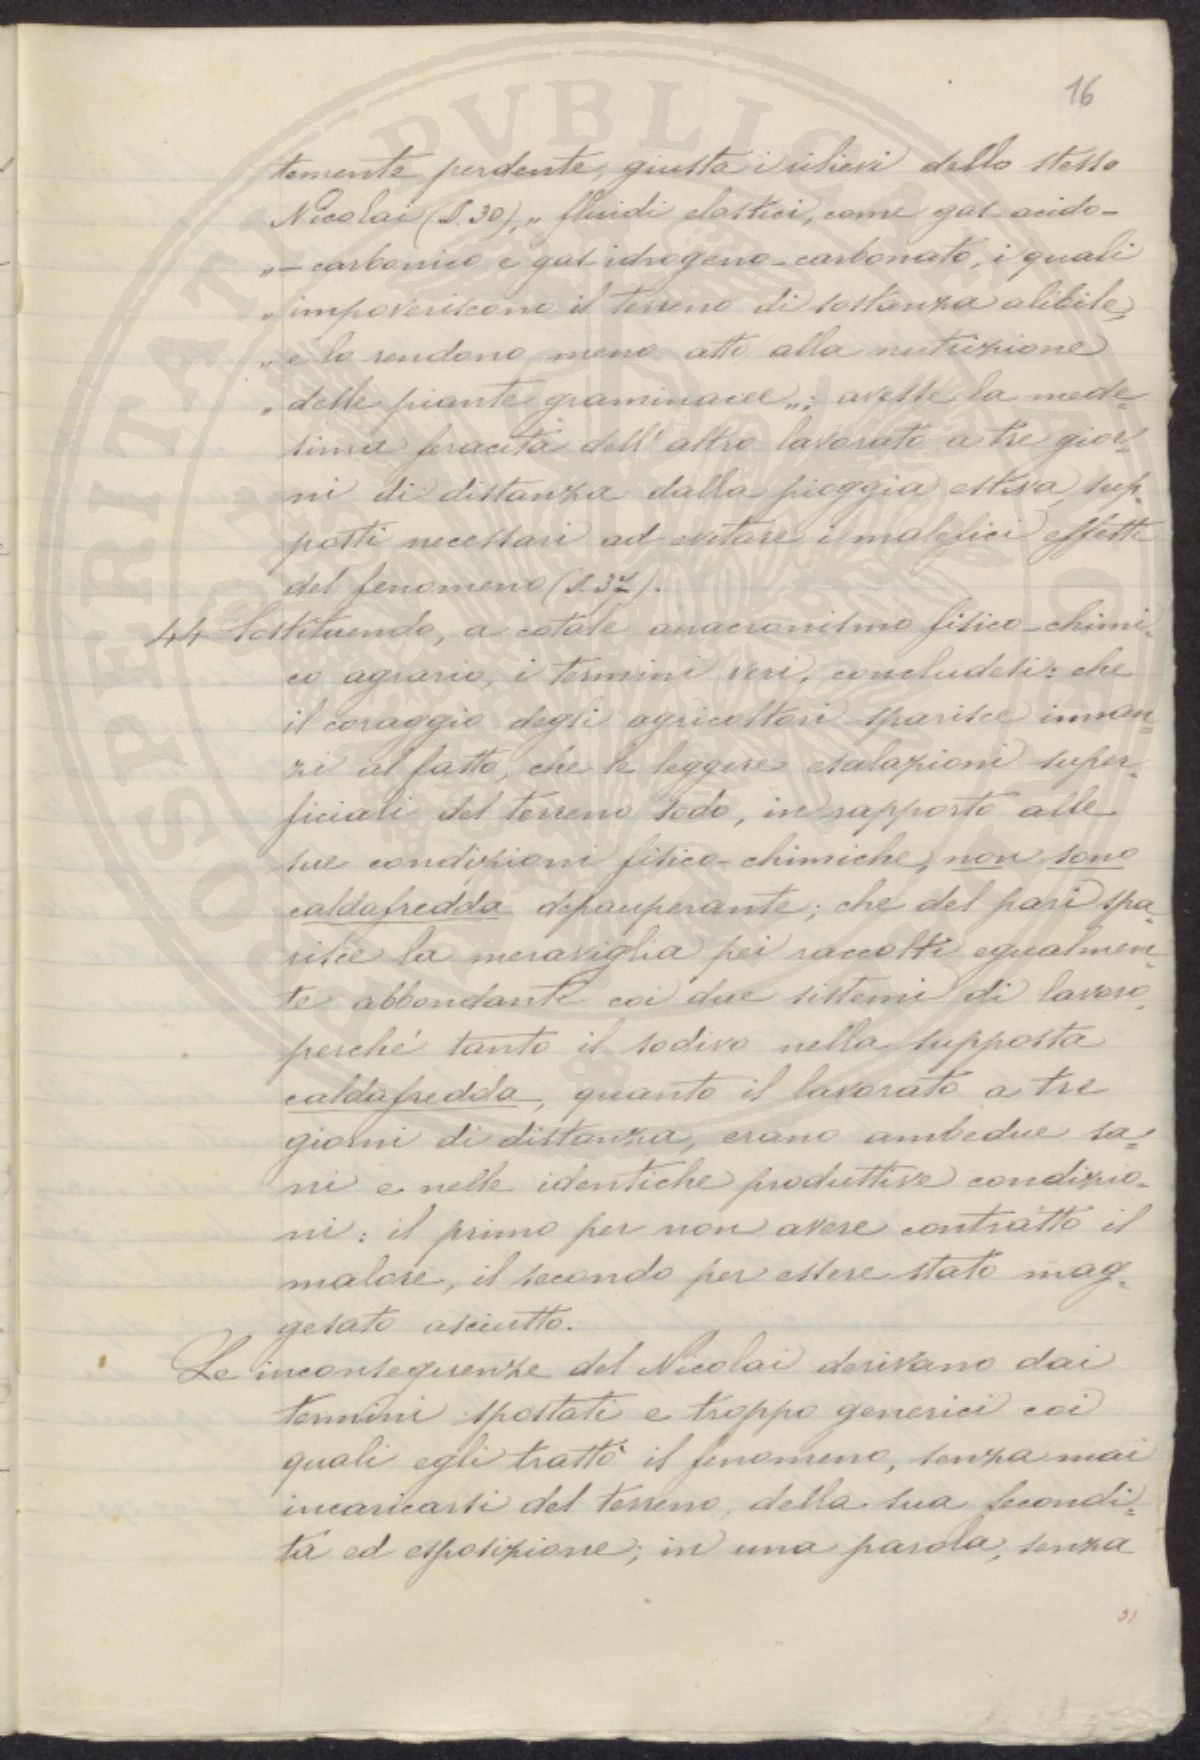 16
temente perdente, giusta i rilievi dello stesso
Nicolai (§.30), „ fluidi elastici, come gas-acido-
„ - carbonico e gas-idrogeno-carbonato, i quali
„ impoveriscono il terreno di sostanza alibile,
„ e lo rendono meno atto alla nutrizione
„ delle piante graminacee „; avesse la mede-
sima feracità dell'altro lavorato a tre gior-
ni di distanza dalla pioggia estiva, sup-
posti necessari ad evitare i malefici effetti
del fenomeno (§.37).
44 Sostituendo, a cotale anacronismo fisico-chimi-
co agrario, i termini veri, concludesi: che
il coraggio degli agricoltori sparisce innan-
zi al fatto, che le leggere esalazioni super-
ficiali del terreno sodo, in rapporto alle
sue condizioni fisico-chimiche, non sono
caldafredda depauperante; che del pari spa-
risce la meraviglia pei raccolti egualmen-
te abbondanti coi due sistemi di lavoro,
perché tanto il sodivo nella supposta
caldafredda, quanto il lavorato a tre
giorni di distanza, erano ambedue sa-
ni e nelle identiche produttive condizio-
ni: il primo per non avere contratto il
malore, il secondo per essere stato mag-
gesato asciutto.
Le inconseguenze del Nicolai derivano dai
termini spostati e troppo generici coi
quali egli trattò il fenomeno, senza mai
incaricarsi del terreno, della sua fecondi-
tà ed esposizione; in una parola, senza
31
PROSPERITATI PUBLICAE